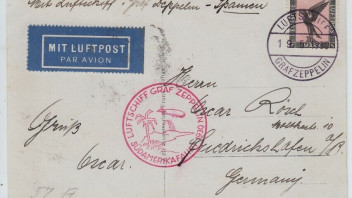 Mit Luftschiff "Graf Zeppelin" Spanien
MIT LUFTPOST
PAR AVION
LUFTSCHIFF
GRAF ZEPPELIN
LUFTSCHIFF GRAF ZEPPELIN
SÜDAMERIKAFAHRT
Herrn
Oscar Rösch
Friedrichshafen a/B.
Germany
Gruß
Oscar.